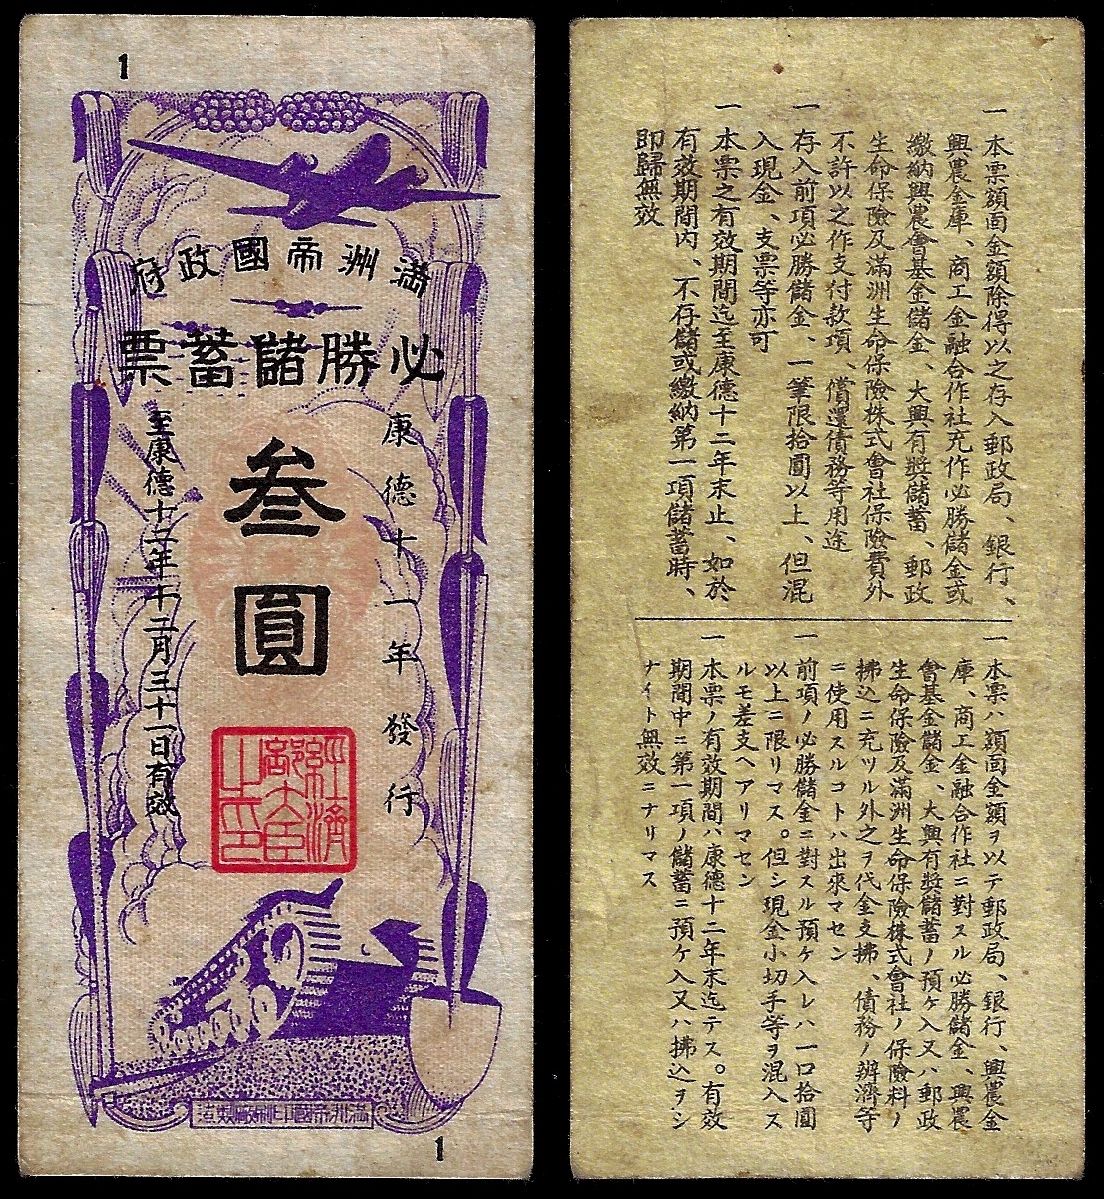 1
滿洲帝國政府
必勝儲蓄票
康德十一年發行
叁圓
至康德十二年十二月三十一日有效
經濟部大臣之印
滿洲帝國印刷廠製造
1
一 本票額面金額除得以之存入郵政局、銀行、
興農金庫、商工金融合作社充作必勝儲金或
繳納興農會基金儲金、大興有獎儲蓄、郵政
生命保險及滿洲生命保險株式會社保險費外
不許以之作支付款項、償還債務等用途
一 存入前項必勝儲金、一筆限拾圓以上、但混
入現金、支票等亦可
一 本票之有效期間迄至康德十二年末止、如於
有效期間內、不存儲或繳納第一項儲蓄時、
即歸無效
一 本票ハ額面金額ヲ以テ郵政局、銀行、興農金
庫、商工金融合作社ニ對スル必勝儲金、興農
會基金儲金、大興有獎儲蓄ノ預ケ入又ハ郵政
生命保險及滿洲生命保險株式會社ノ保險料ノ
拂込ニ充ツル外之ヲ代金支拂、債務ノ辦濟等
ニ使用スルコトハ出來マセン
一 前項ノ必勝儲金ニ對スル預ケ入レハ一口拾圓
以上ニ限リマス。但シ現金小切手等ヲ混入ス
ルモ差支ヘアリマセン
一 本票ノ有效期間ハ康德十二年末迄デス。有效
期間中ニ第一項ノ儲蓄ニ預ケ入又ハ拂込ヲシ
ナイト無效ニナリマス